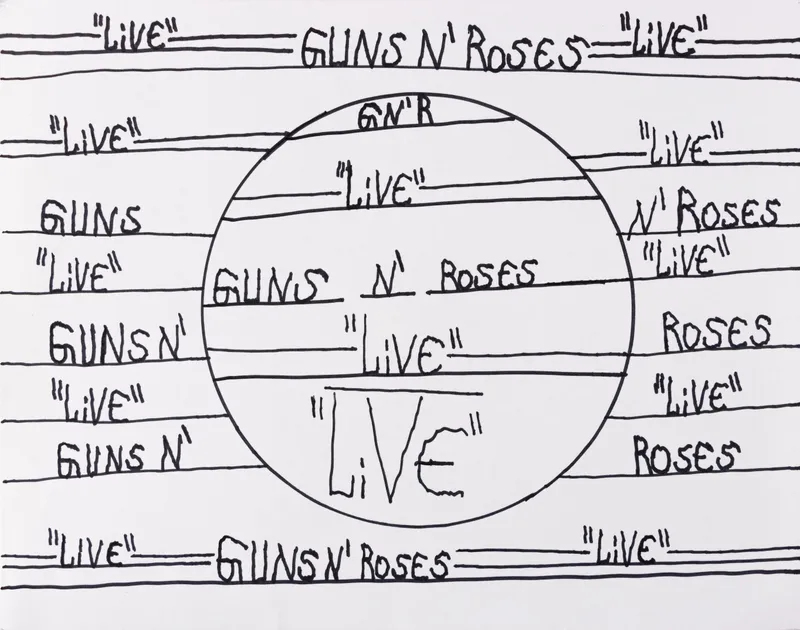 "LiVE" GUNS N' ROSES "LiVE"
GN'R
"LiVE" "LiVE"
"LiVE"
GUNS N' ROSES
"LiVE" "LiVE"
GUNS N' ROSES
GUNS N' ROSES
"LiVE"
"LiVE" "LiVE"
"LiVE"
GUNS N' ROSES
"LiVE" GUNS N' ROSES "LiVE"